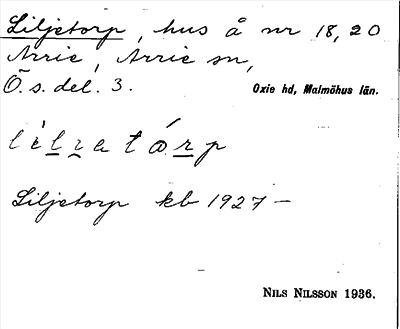 Liljetorp, hus å nr 18, 20
Arrie, Arrie sn,
Ö.s. del. 3. Oxie hd, Malmöhus län.
Liljetorp kb 1927 –
NILS NILSSON 1936.